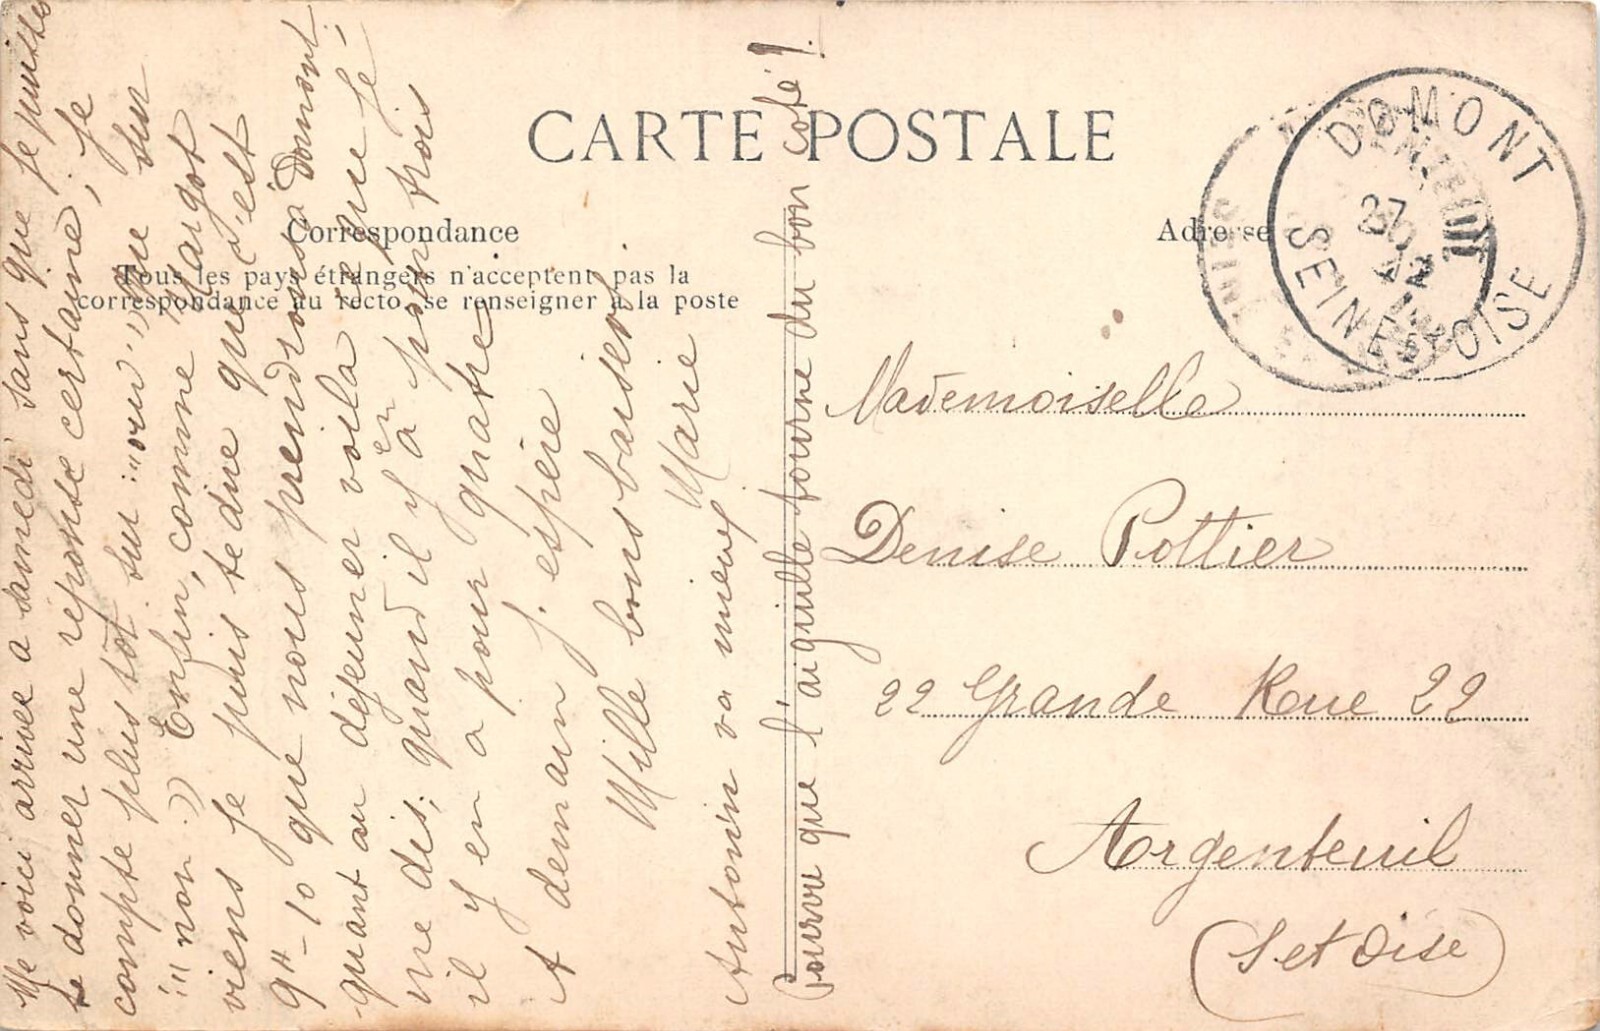 CARTE POSTALE
Correspondance
Tous les pays étrangers n'acceptent pas la
correspondance au recto, se renseigner à la poste
Adresse
DOMONT
27
12
SEINE & OISE
Mademoiselle
Denise Pottier
22 Grande Rue 22
Argenteuil
(S et Oise)
Me voici arrivée à samedi sans que je puisse
te donner une réponse certaine; je
compte plus tôt sur "oui" que sur
"non".) Enfin, comme Margot
viens je puis te dire que c'est
9H-10 que nous prendrons à Domont;
quant au déjeuner voila ce que je
me dis; quand il y en a pour trois
il y en a pour quatre
A demain j'espère
Mille bons baisers
Marie
Antonin va mieux
pourvu que l'aiguille tourne du bon coté!